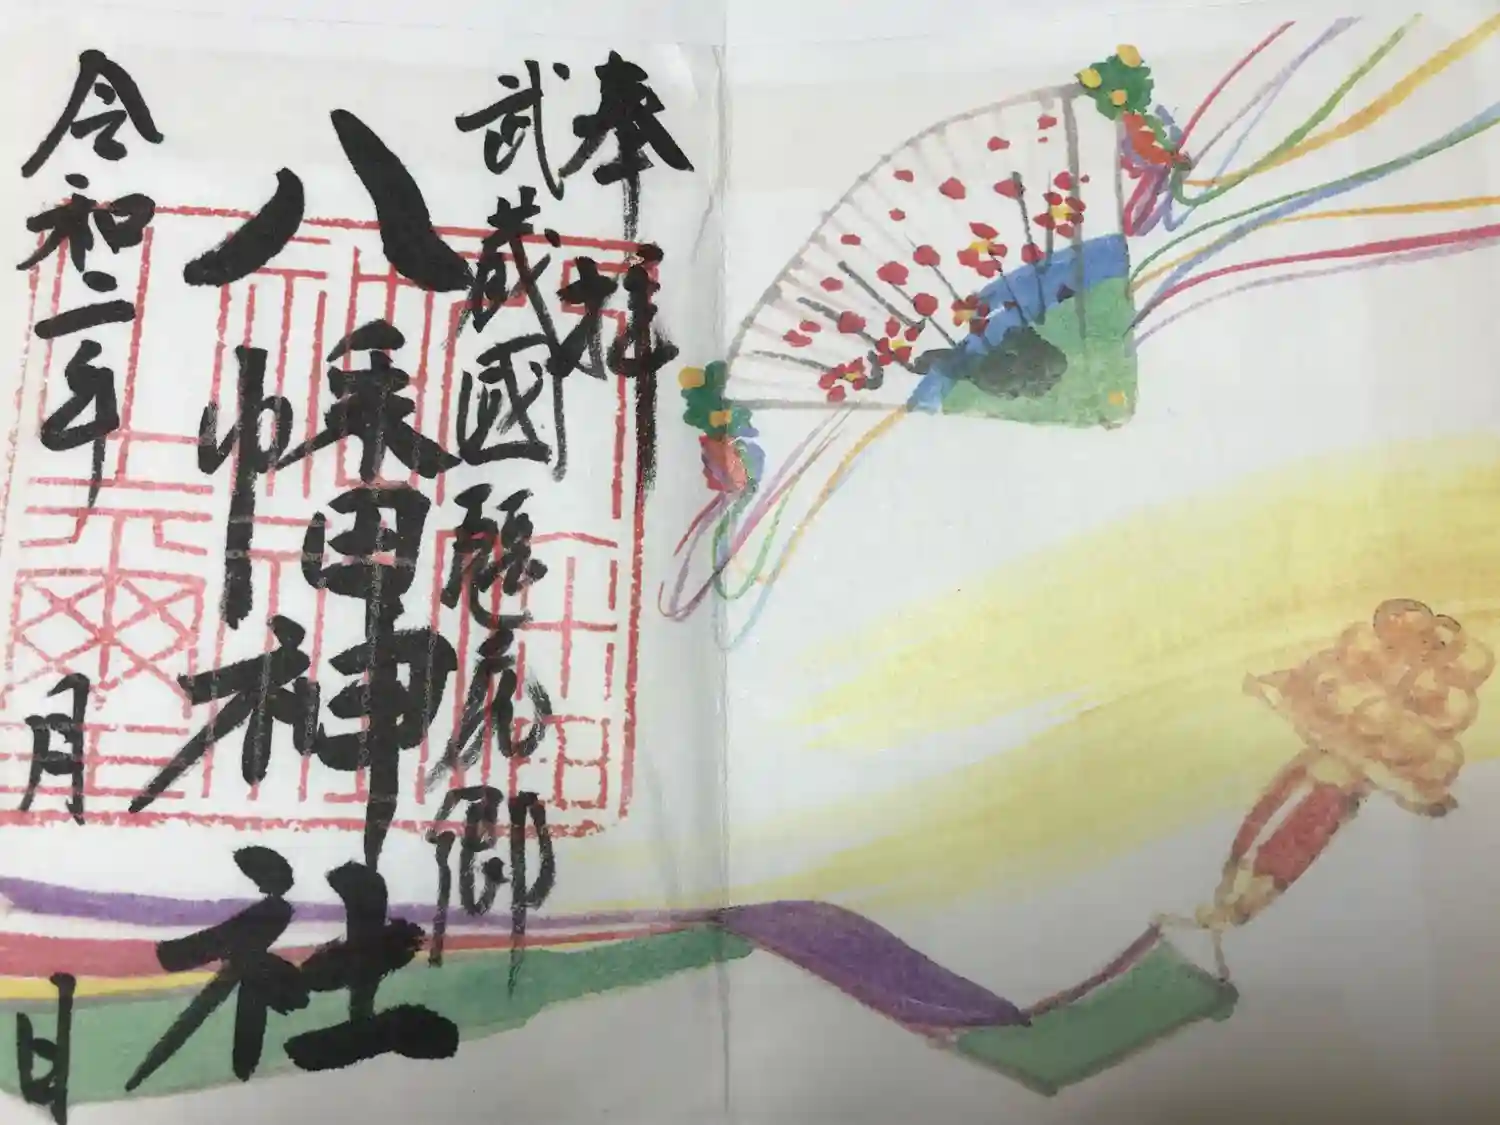 奉拝
武蔵國 郷
八幡神社
令和二年 月 日